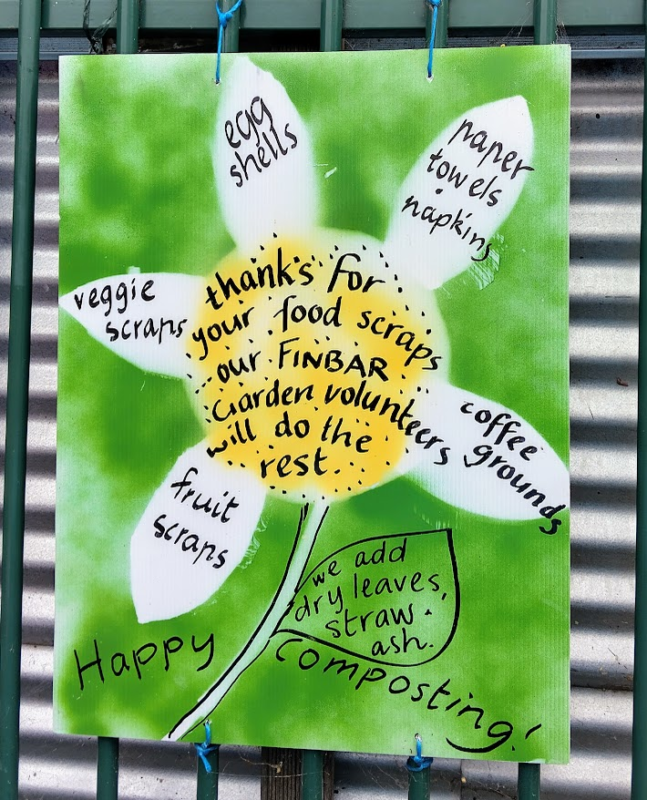 egg
shells
paper
towels
napkins
veggie
scraps
thanks for
your food scraps
our FINBAR
Garden volunteers
will do the
rest.
coffee
grounds
fruit
scraps
we add
dry leaves,
straw.
ash.
Happy
composting!